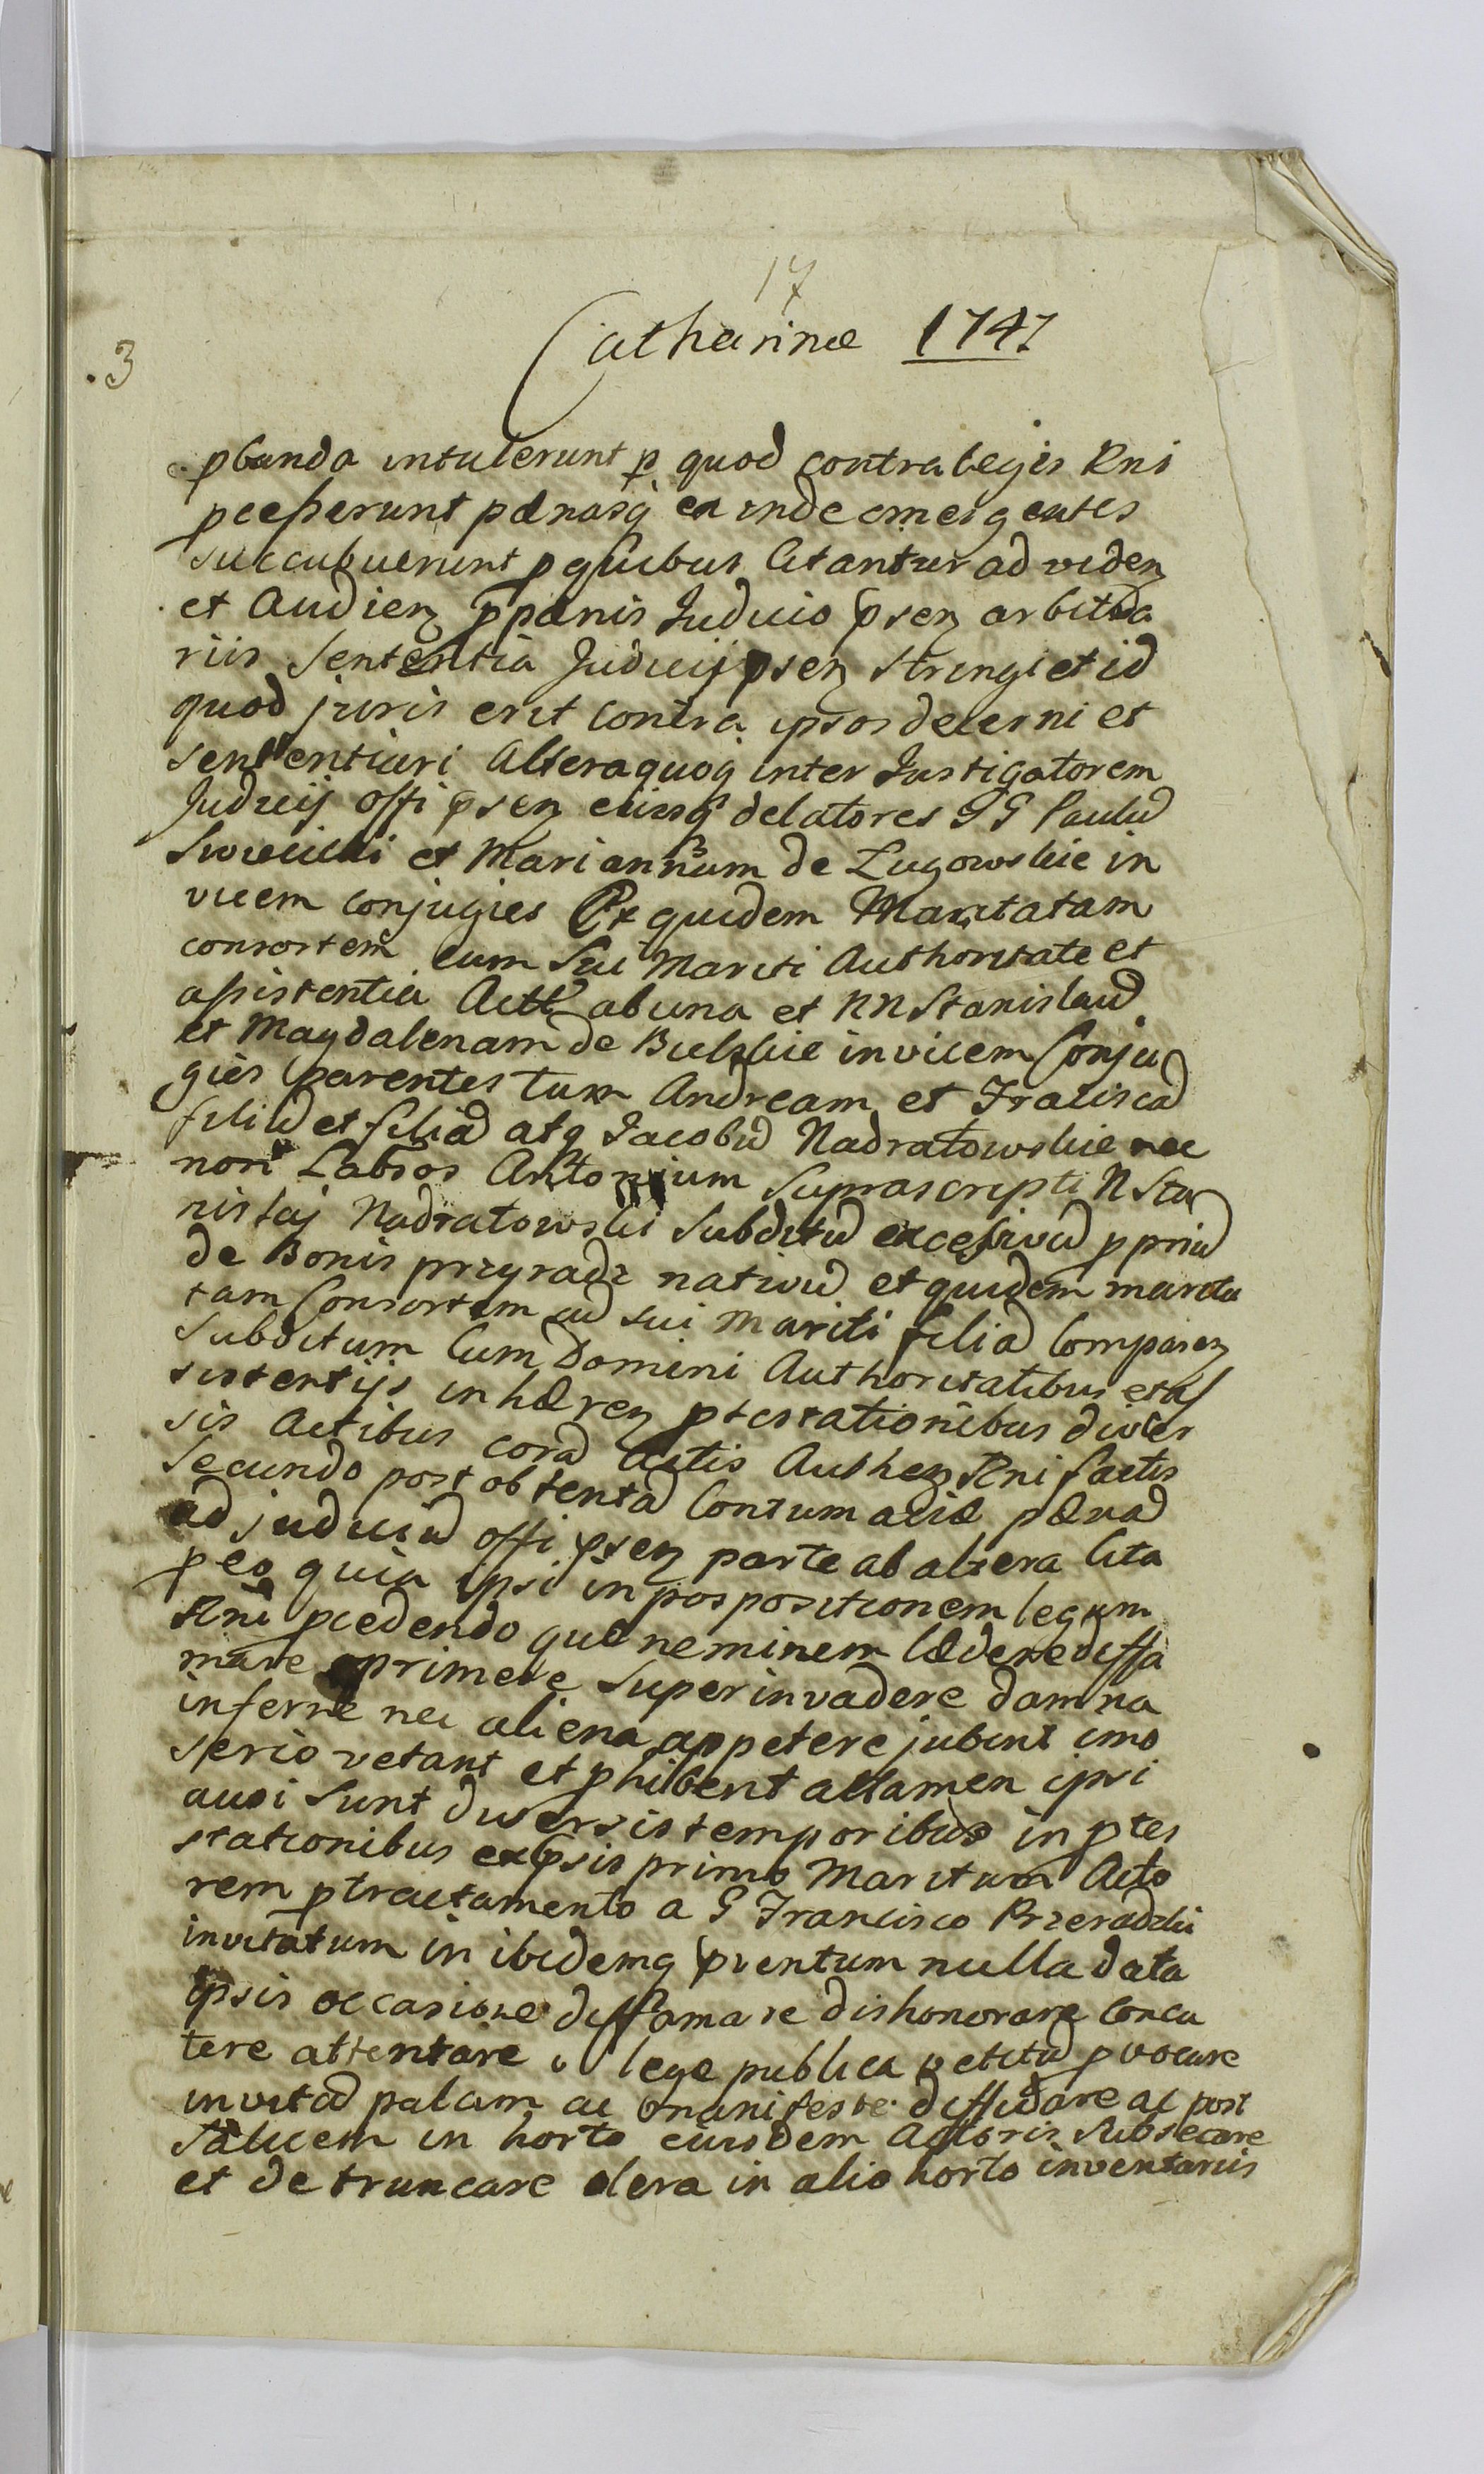 17
.3
Catharinæ 1747
pbanda intulerunt p quod contra leges Rni
pcesserunt pænasq ex inde emergentes
succubuerunt p quibus Citantur ad viden
et Audien p pænis Judicio psen arbitra
riis Sententia Judicij psen stringi et id
quod juris erit contra ipsos decerni et
sententiari Altera quoq inter Instigatorem
Judicij offi psen eiusq delatores GG Paulu
et Mariannam de Lugowskie in
vicem conjugies et quidem Maritatam
consortem cum Sui Mariti Authoritate et
assistentia Actt ab una et NN Stanislau
et Magdalenam de Bielskie invicem Conju
gies parentes tum Andream et Franciscā
filiū et filiā atq Jacobū Nadratowskie nec
non Labros Antonium Suprascripti N Sta
nislaj Nadratowski Subditū excessivū p priū
de Bonis przyradz nativū et quidem marita
tam Consortem cū sui Mariti filiā Comparen
Subditum Cum Domini Authoritatibus et as
sistentijs inhæren ptestationibus diver
sis Actibus corā Actis Authen Rni factis
Secundo post obtentā Contumaciæ pænā
ad judiciū offi psen parte ab altera Cita
p eo quia ipsi in pospositionem legum
Rni pcedendo quæ neminem lædere diffa
mare oprimere Super invadere damna
inferre nec aliena appetere jubent imo
serio vetant et phibent attamen ipsi
ausi Sunt diversis temporibus in ptes
stationibus expsis primo Maritum Acto
rem p tractamento a G Francisco Przeradzki
invitatum in ibidemq pventum nulla data
ipsis occasione diffamare dishonorare Concu
tere attentare lege publica vetitū pvocare
invitā palam ac manifeste diffidare ac post
Salicem in horto eiusdem Actoris Subsecare
et detruncare olera in alio horto inventariis